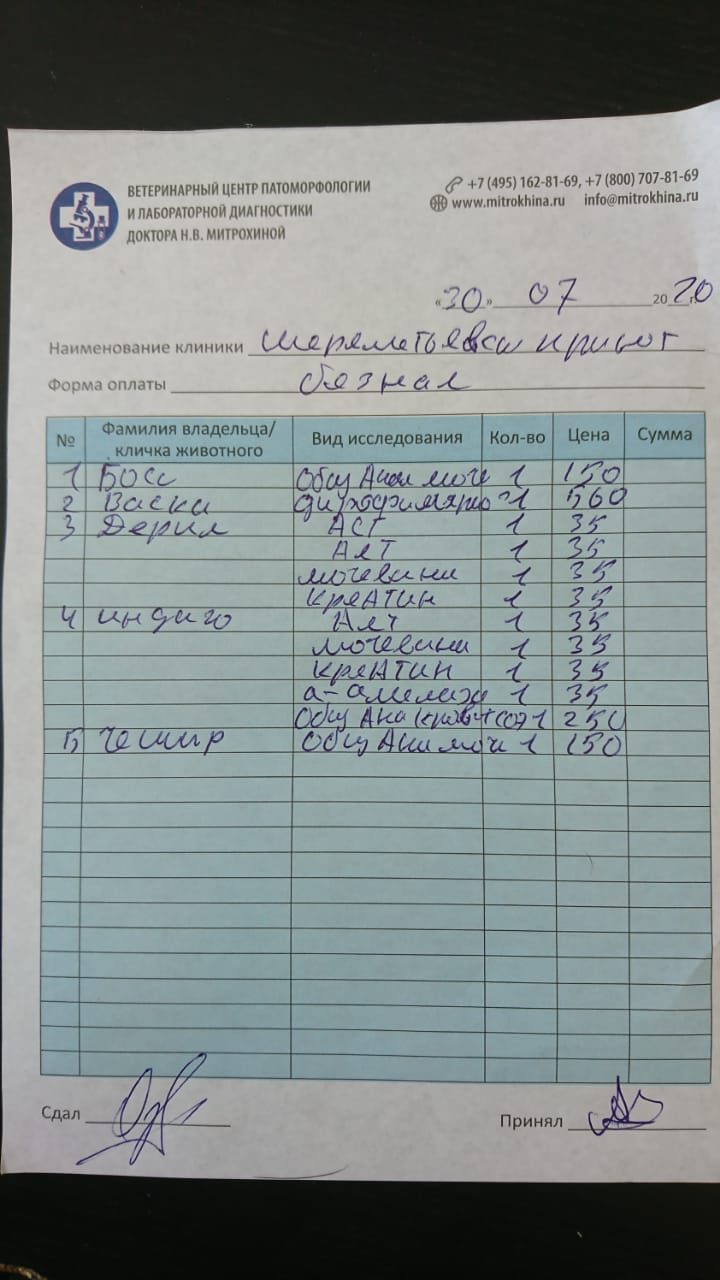 ВЕТЕРИНАРНЫЙ ЦЕНТР ПАТОМОРФОЛОГИИ
И ЛАБОРАТОРНОЙ ДИАГНОСТИКИ
ДОКТОРА Н.В. МИТРОХИНОЙ
+7 (495) 162-81-69, +7 (800) 707-81-69
www.mitrokhina.ru info@mitrokhina.ru
«30» 07 2020 г.
Наименование клиники приют
Форма оплаты безнал
№ Фамилия владельца/ кличка животного Вид исследования Кол-во Цена Сумма
1 Босс Общ Анал моче 1 150
2 Васка 1 560
3 Дерил АСТ 1 35
АлТ 1 35
мочевина 1 35
КреАТИН 1 35
4 индиго Алт 1 35
мочевина 1 35
КреАТИН 1 35
а-амелаза 1 35
Общ Ана кров+соэ 1 250
5 Чешир Общ Ана моч 1 150
Сдал
Принял